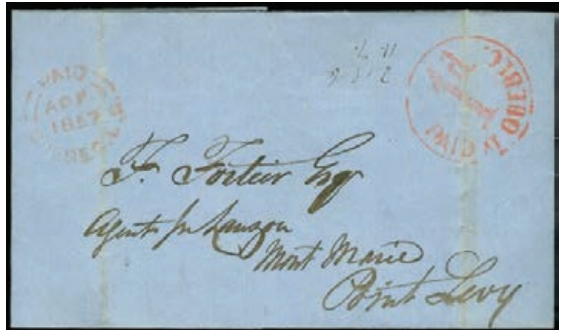 PAID
1857
QUEBEC
PAID AT QUEBEC
F. Fortier Esq
Agent for Lauzon
Mont Marie
Point Levy